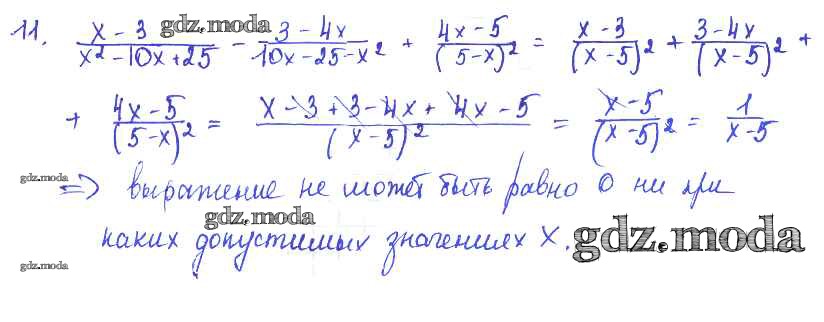 11. (x - 3)/(x² - 10x + 25) - (3 - 4x)/(10x - 25 - x²) + (4x - 5)/(5 - x)² = (x - 3)/(x - 5)² + (3 - 4x)/(x - 5)² +
+ (4x - 5)/(5 - x)² = (x - 3 + 3 - 4x + 4x - 5)/(x - 5)² = (x - 5)/(x - 5)² = 1/(x - 5)
=> выражение не может быть равно 0 ни при
каких допустимых значениях x.
gdz.moda
gdz.moda
gdz.moda
gdz.moda
gdz.moda